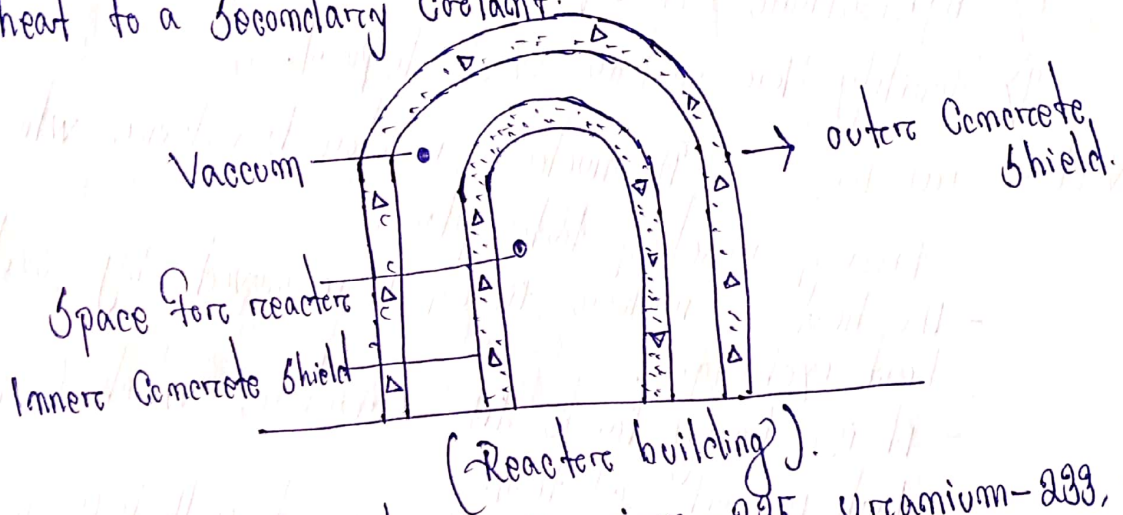 heat to a Secondary Coolant.
Vaccum
outer Concrete
Shield.
Space for reactor
Inner Concrete Shield
(Reactor building).
235, Uranium-233,